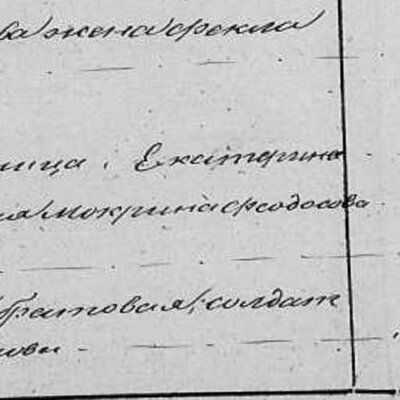 ва жена Фекла
ница. Екатерина
ия Мокрина Феодосова
Братовая; солдат
нова